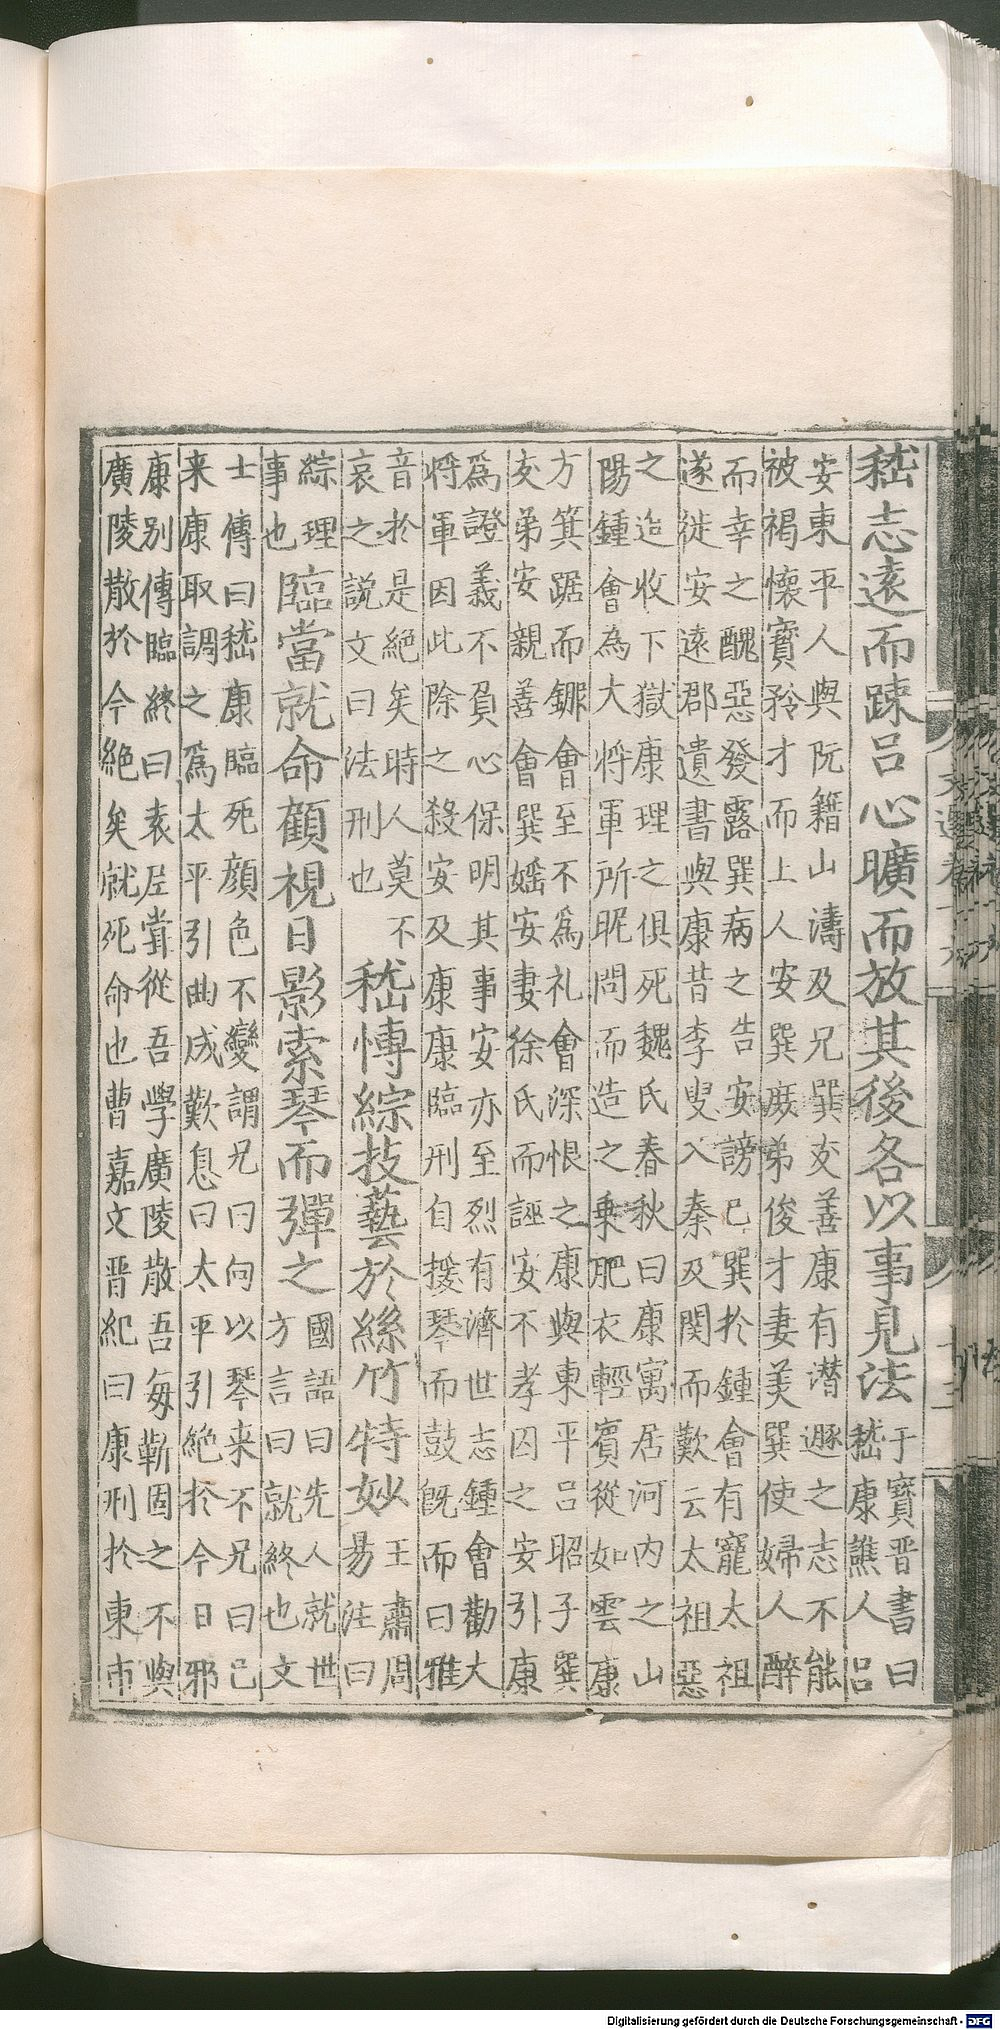 嵇志遠而踈呂心曠而放其後各以事見法
于寶晋書曰
嵇康譙人呂
安東平人與阮籍山濤及兄巽友善康有潜遯之志不能
被褐懷寶矜才而上人安巽庶弟俊才妻美巽使婦人醉
而幸之醜惡發露巽病之告安謗己巽扵鍾會有寵太祖
遂徙安遠郡遺書與康昔李叟入秦及関而歎云太祖惡
之追收下獄康理之俱死魏氏春秋曰康寓居河内之山
陽鍾會為大将軍所昵問而造之乗肥衣輕賔從如雲康
方箕踞而鎯會至不為礼會深恨之康與東平呂昭子巽
友弟安親善會巽婬安妻徐氏而誣安不孝囚之安引康
為證義不負心保明其事安亦至烈有濟世志鍾會勸大
将軍因此除之殺安及康康臨刑自援琴而鼓既而曰雅
音於是絕矣時人莫不
哀之説文曰法刑也
嵇博綜技藝於絲竹特妙
王肅周
易注曰
綜理
事也
臨當就命顧視日影索琴而彈之
國語曰先人就世
方言曰就終也文
士傳曰嵇康臨死顔色不變謂兄曰向以琴来不兄曰已
来康取調之為太平引曲成歎息曰太平引絶扵今日邪
康別傳臨終曰袁尼甞從吾學廣陵散吾每靳固之不與
廣陵散於今絶矣就死命也曹嘉文晋紀曰康刑扵東市
Digitalisierung gefördert durch die Deutsche Forschungsgemeinschaft - DFG